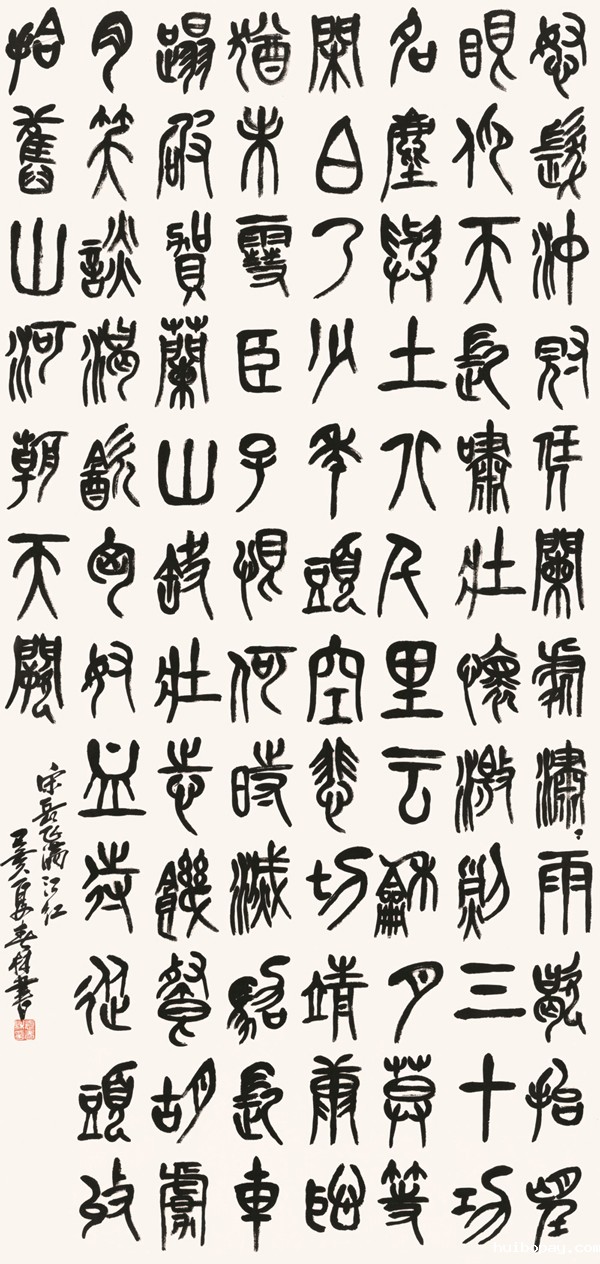 怒髮沖冠凭闌處瀟〻雨歇抬望
眼仰天長嘯壯懷激烈三十功
名塵與土八千里云龢月莫等
閑白了少年頭空悲切靖康恥
猶未雪臣子恨何時滅駕長車
蹋破賀蘭山缺壯志饑餐胡虜
月笑談渴飲匈奴血待從頭收
拾舊山河朝天闕
宋岳飛滿江红
亥夏春書